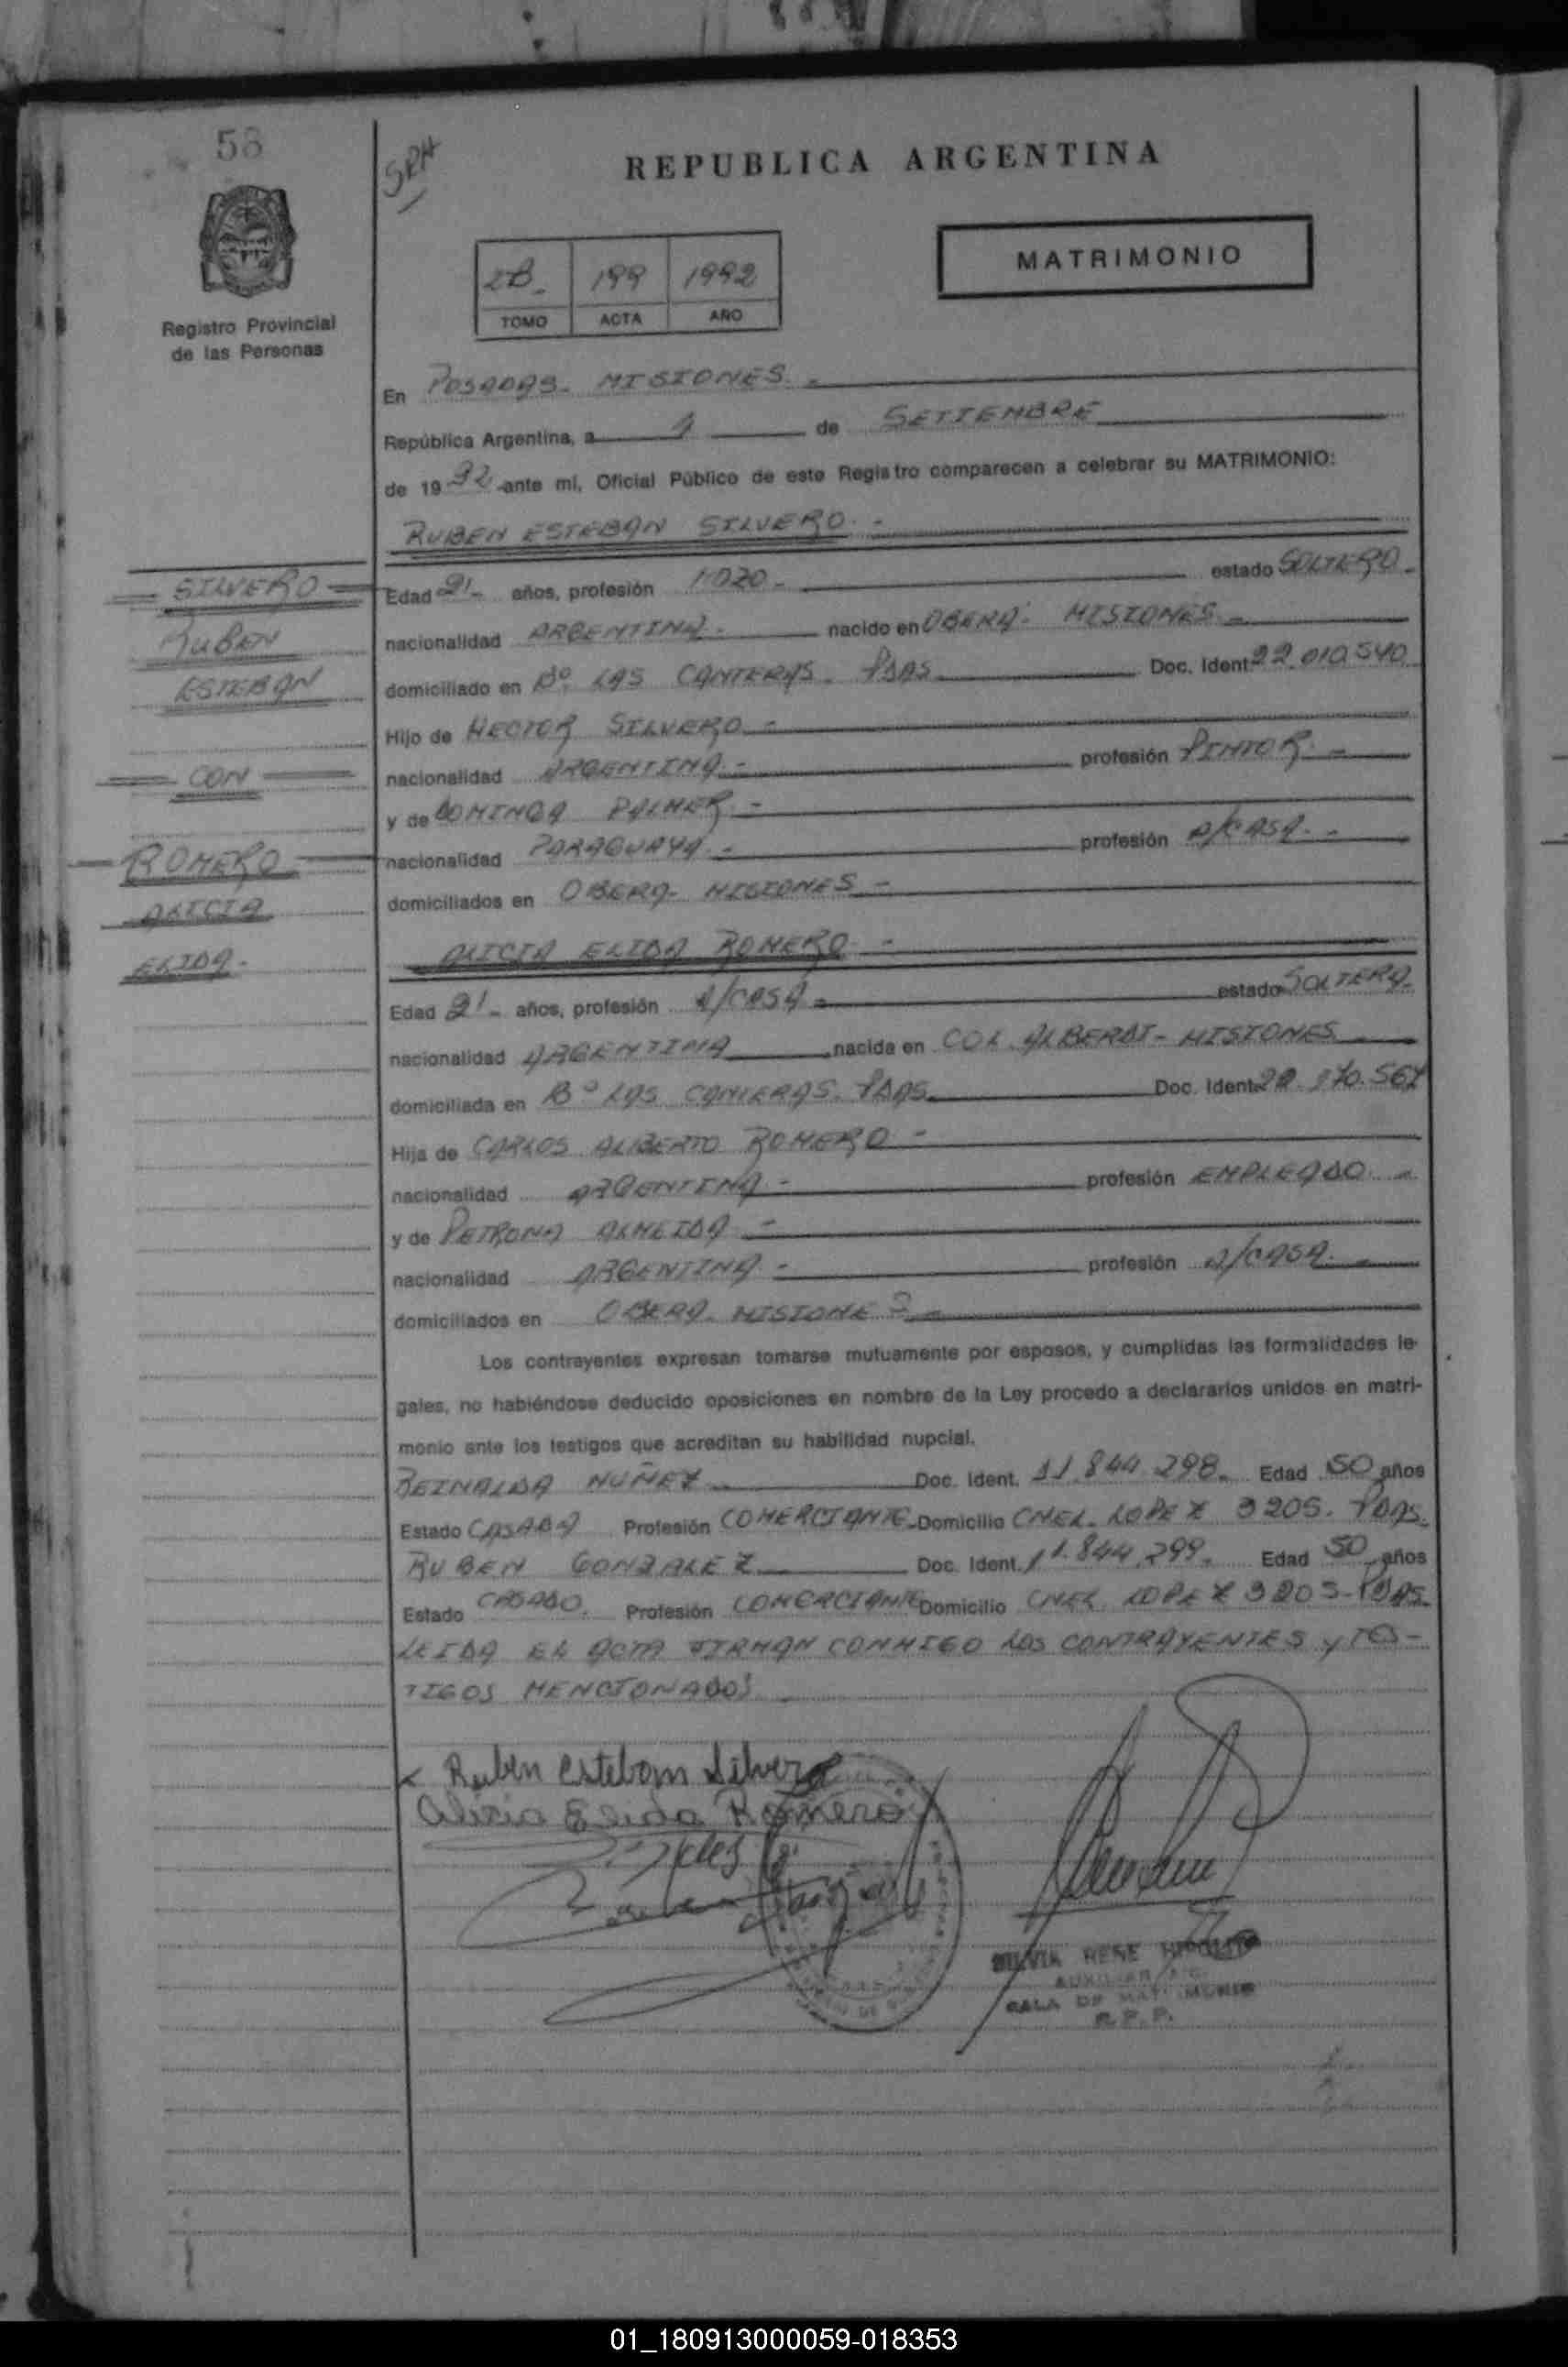 58
SRH
REPUBLICA ARGENTINA
MATRIMONIO
2B. 199 1992
TOMO ACTA AÑO
Registro Provincial
de las Personas
En POSADAS - MISIONES. -
República Argentina, a 1 de SETIEMBRE
de 1992 ante mí, Oficial Público de este Registro comparecen a celebrar su MATRIMONIO:
RUBEN ESTEBAN SILVERO. -
SILVERO
RUBEN
ESTEBAN
CON
ROMERO
ALICIA
ELIDA -
Edad 21 - años, profesión MOZO - estado SOLTERO -
nacionalidad ARGENTINA - nacido en OBERA - MISIONES -
domiciliado en Bº LAS CANTERAS - PDAS Doc. Ident. 22.010.540
Hijo de HECTOR SILVERO -
nacionalidad ARGENTINA - profesión PINTOR. -
y de DOMINGA PALMER -
nacionalidad PARAGUAYA - profesión A/CASA. -
domiciliados en OBERA - MISIONES -
ALICIA ELIDA ROMERO -
Edad 21 - años, profesión A/CASA - estado SOLTERA -
nacionalidad ARGENTINA nacida en COL. ALBERDI - MISIONES
domiciliada en Bº LAS CANTERAS - PDAS. Doc. Ident.
Hija de CARLOS ALBERTO ROMERO -
nacionalidad ARGENTINA - profesión EMPLEADO -
y de PETRONA ALMEIDA -
nacionalidad ARGENTINA - profesión A/CASA. -
domiciliados en OBERA - MISIONES -
Los contrayentes expresan tomarse mutuamente por esposos, y cumplidas las formalidades le-
gales, no habiéndose deducido oposiciones en nombre de la Ley procedo a declararlos unidos en matri-
monio ante los testigos que acreditan su habilidad nupcial.
REINALDA NUÑEZ Doc. Ident. 11.844.298. Edad 50 años
Estado CASADA Profesión COMERCIANTE - Domicilio CNEL. LOPEZ 3205. PDAS.
RUBEN GONZALEZ Doc. Ident. 11.844.299. Edad 50 años
Estado CASADO. Profesión COMERCIANTE Domicilio CNEL LOPEZ 3205 - PDAS.
LEIDA EL ACTA FIRMAN CONMIGO LOS CONTRAYENTES y TES-
TIGOS MENCIONADOS
Ruben esteban Silvero
Alicia Elida Romero
SILVIA RENE
AUXILIAR
SALA DE MATRIMONIO
R.P.P.
01_180913000059-018353